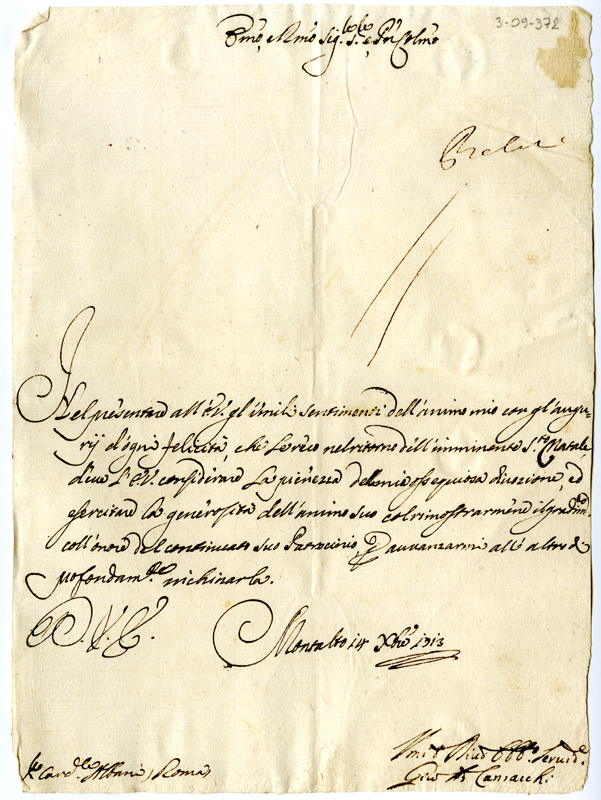 3-09-372
Em̃o, e Rm̃o Sig.re Sig.re e Pñ Colm̃o
Nel presentare all'E.V. gl'umili sentimenti dell'animo mio con gl'augu-
rij d'ogni felicità, che le reco nel ritorno dell'imminente S.to Natale,
deue l'E.V. considerare la pienezza del mio ossequioso diuozione, ed
esercitare la generosità dell'animo suo col rimostrarmene il gradim.to
coll'onore del continuato suo Patrocinio, e auuanzarmi all'altro di
profondam.te inchinarla.
D. V. E.
Montalto 14 Xbre 1713
S.r Card.le Albani, Roma
Vm.o Diuo Obb.o Seruid.e
Gio.